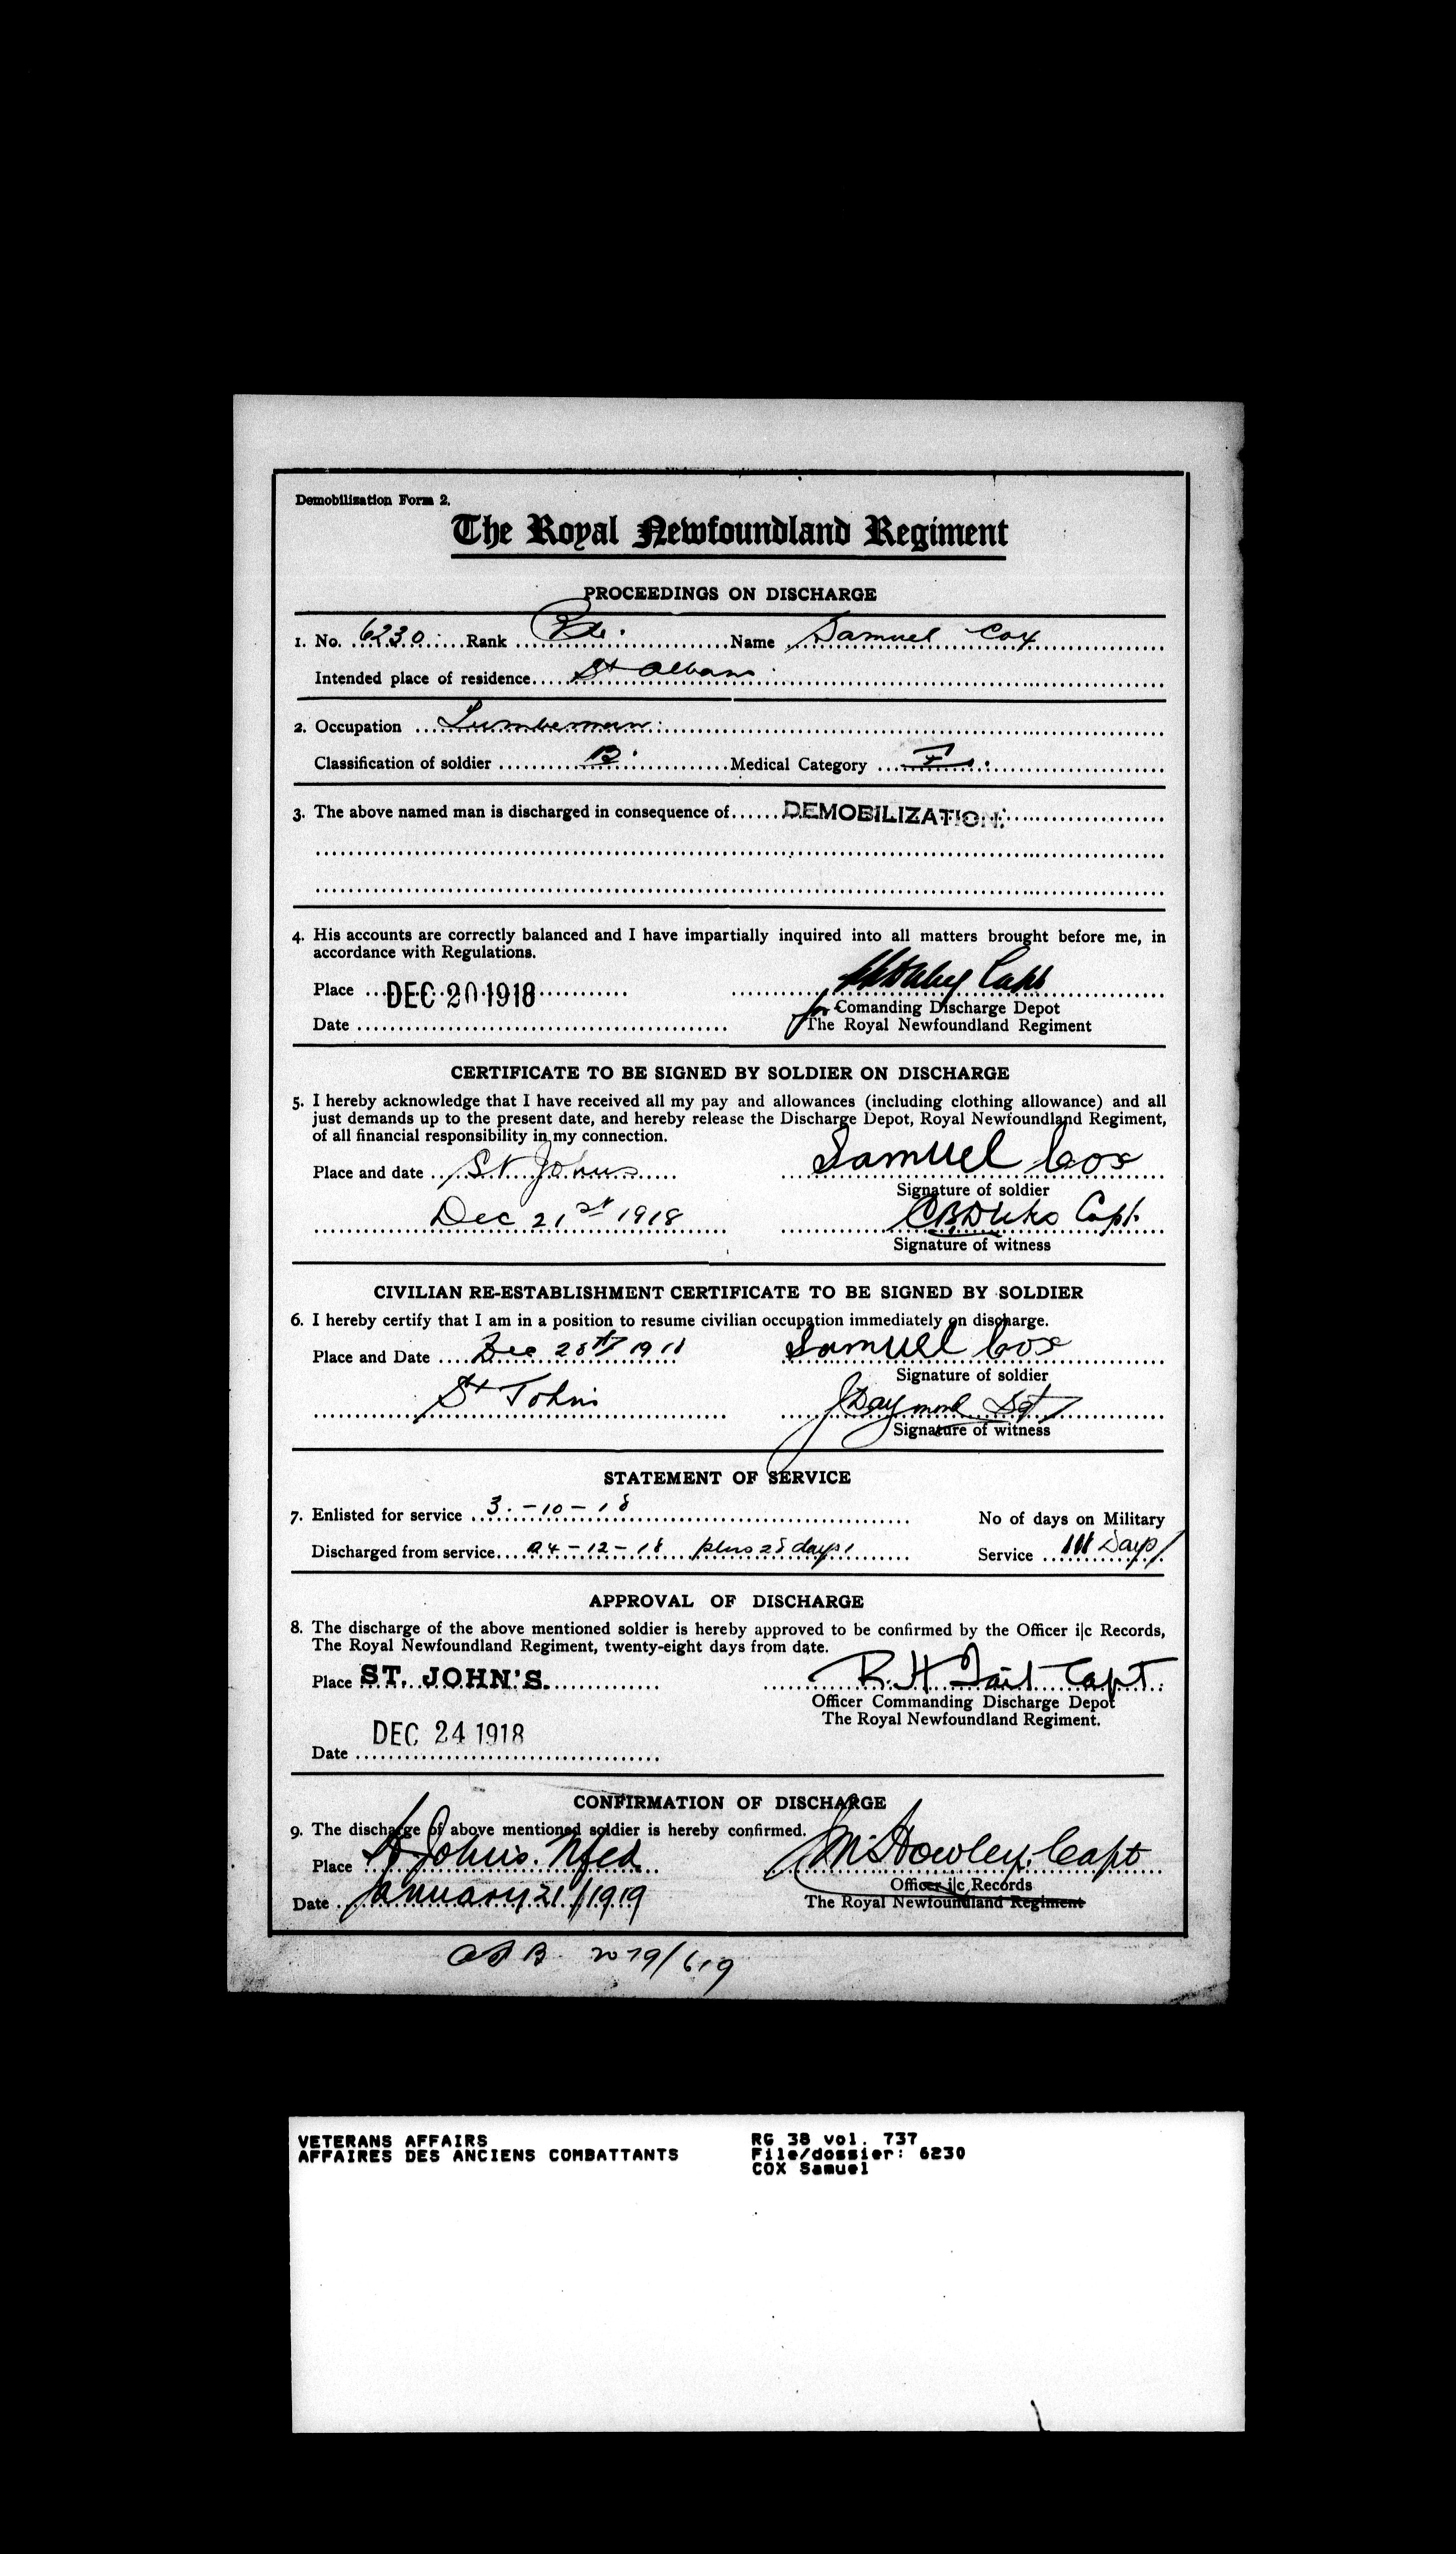 Demobilization Form 2.
The Royal Newfoundland Regiment
PROCEEDINGS ON DISCHARGE
1. No. 6230 Rank Pte. Name Samuel Cox
Intended place of residence St Albans
2. Occupation Lumberman
Classification of soldier B Medical Category F
3. The above named man is discharged in consequence of DEMOBILIZATION.
4. His accounts are correctly balanced and I have impartially inquired into all matters brought before me, in
accordance with Regulations.
Place DEC 20 1918 Capt
for Comanding Discharge Depot
Date The Royal Newfoundland Regiment
CERTIFICATE TO BE SIGNED BY SOLDIER ON DISCHARGE
5. I hereby acknowledge that I have received all my pay and allowances (including clothing allowance) and all
just demands up to the present date, and hereby release the Discharge Depot, Royal Newfoundland Regiment,
of all financial responsibility in my connection.
Place and date St Johns Samuel Cox
Signature of soldier
Dec 21st 1918 Capt.
Signature of witness
CIVILIAN RE-ESTABLISHMENT CERTIFICATE TO BE SIGNED BY SOLDIER
6. I hereby certify that I am in a position to resume civilian occupation immediately on discharge.
Place and Date Dec 20th 1918 Samuel Cox
Signature of soldier
St Johns Sgt
Signature of witness
STATEMENT OF SERVICE
7. Enlisted for service 3.-10-18 No of days on Military
Discharged from service 24-12-18 plus 28 days Service 111 Days
APPROVAL OF DISCHARGE
8. The discharge of the above mentioned soldier is hereby approved to be confirmed by the Officer i|c Records,
The Royal Newfoundland Regiment, twenty-eight days from date.
Place ST. JOHN'S. R. H. Tait Capt.
Officer Commanding Discharge Depot
The Royal Newfoundland Regiment.
DEC 24 1918
Date
CONFIRMATION OF DISCHARGE
9. The discharge of above mentioned soldier is hereby confirmed.
Place St Johns. Nfld M Howley, Capt
Officer i|c Records
Date January 21/1919 The Royal Newfoundland Regiment
2079/619
VETERANS AFFAIRS RG 38 vol. 737
AFFAIRES DES ANCIENS COMBATTANTS File/dossier: 6230
COX Samuel